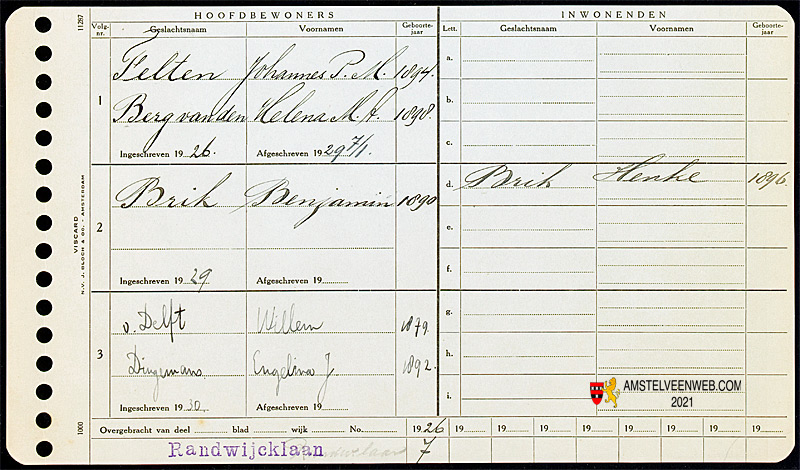 HOOFDBEWONERS INWONENDEN
Volg-nr. Geslachtsnaam Voornamen Geboorte-jaar Lett. Geslachtsnaam Voornamen Geboorte-jaar
11287
1
Felten Johannes P. M. 1894. a.
Berg van den Helena M. A. 1898. b.
c.
Ingeschreven 19 26. Afgeschreven 19 29 7/1
2
Brik Benjamin 1890 d. Brik Henke 1896.
e.
f.
Ingeschreven 19 29 Afgeschreven 19
VISCARD
N.V. J. BLOCH & CO. - AMSTERDAM
3
v. Delft Willem 1879. g.
Dingemans Engelina J. 1892. h.
i.
Ingeschreven 19 30. Afgeschreven 19
AMSTELVEENWEB.COM
2021
1000
Overgebracht van deel blad wijk No. 1926 19 19 19 19 19 19 19 19
Randwijcklaan 7